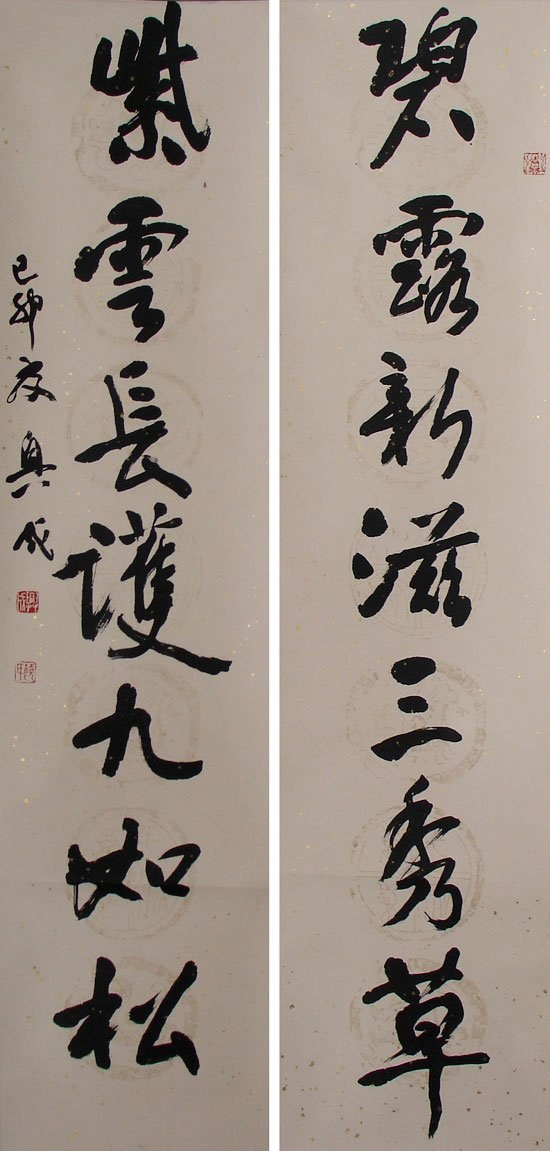 碧露新滋三秀草
紫雲長護九如松
己卯夏